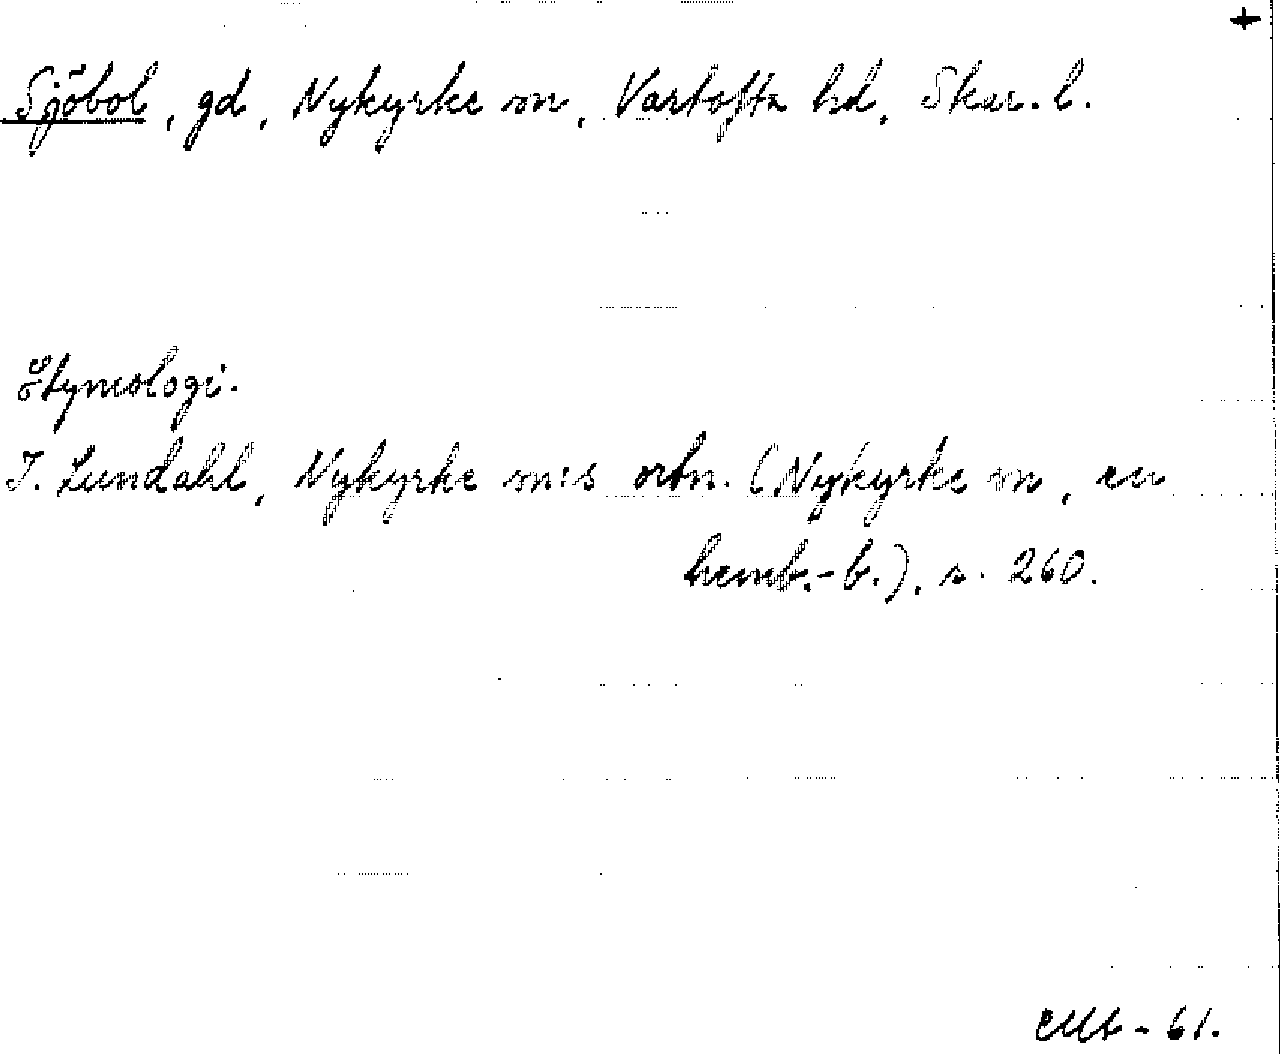 +
Sjöbol, gd, Nykyrke sn, Vartofta hd, Skar. l.
Etymologi.
I. Lundahl, Nykyrke sn:s ortn. (Nykyrke sn, en
hemb.-b.), s. 260.
- 61.